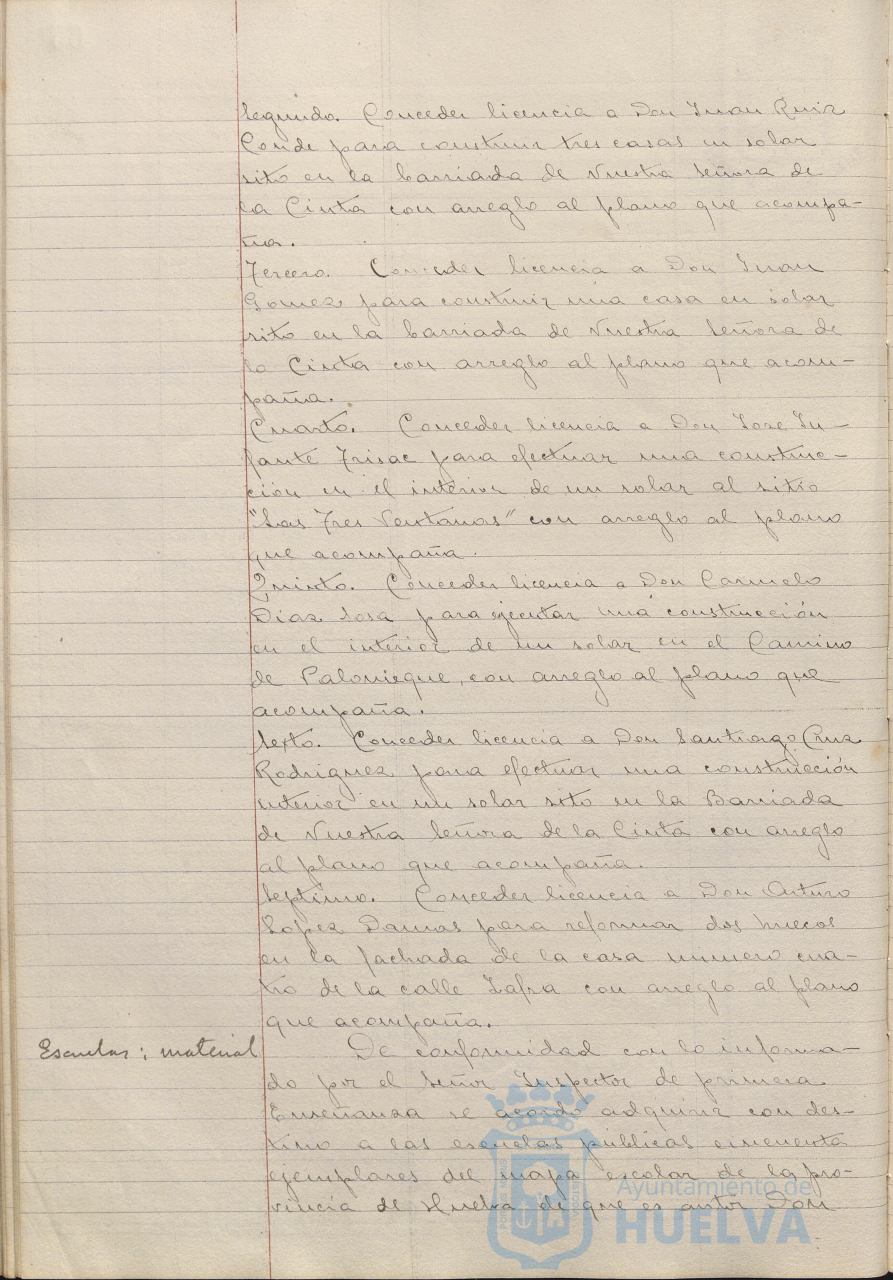 Segundo. Conceder licencia a Don Juan Ruiz
Conde para construir tres casas en solar
sito en la barriada de Nuestra Señora de
la Cinta con arreglo al plano que acompa-
ña.
Tercero. Conceder licencia a Don Juan
Gomez para construir una casa en solar
sito en la barriada de Nuestra Señora de
la Cinta con arreglo al plano que acom-
paña.
Cuarto. Conceder licencia a Don Jose In-
fante Trisac para efectuar una construc-
ción en el interior de un solar al sitio
"Las Tres Ventanas" con arreglo al plano
que acompaña.
Quinto. Conceder licencia a Don Carmelo
Diaz Sosa para ejecutar una construcción
en el interior de un solar en el Camino
de Palomeque, con arreglo al plano que
acompaña.
Sexto. Conceder licencia a Don Santiago Cruz
Rodriguez para efectuar una construcción
interior en un solar sito en la Barriada
de Nuestra Señora de la Cinta con arreglo
al plano que acompaña.
Septimo. Conceder licencia a Don Arturo
Lopez Damas para reformar dos huecos
en la fachada de la casa numero cua-
tro de la calle Zafra con arreglo al plano
que acompaña.
Escuelas: material
De conformidad con lo informa-
do por el Señor Inspector de primera
Enseñanza se acordó adquirir con des-
tino a las escuelas públicas cincuenta
ejemplares del mapa escolar de la pro-
vincia de Huelva de que es autor Don
Ayuntamiento de
HUELVA